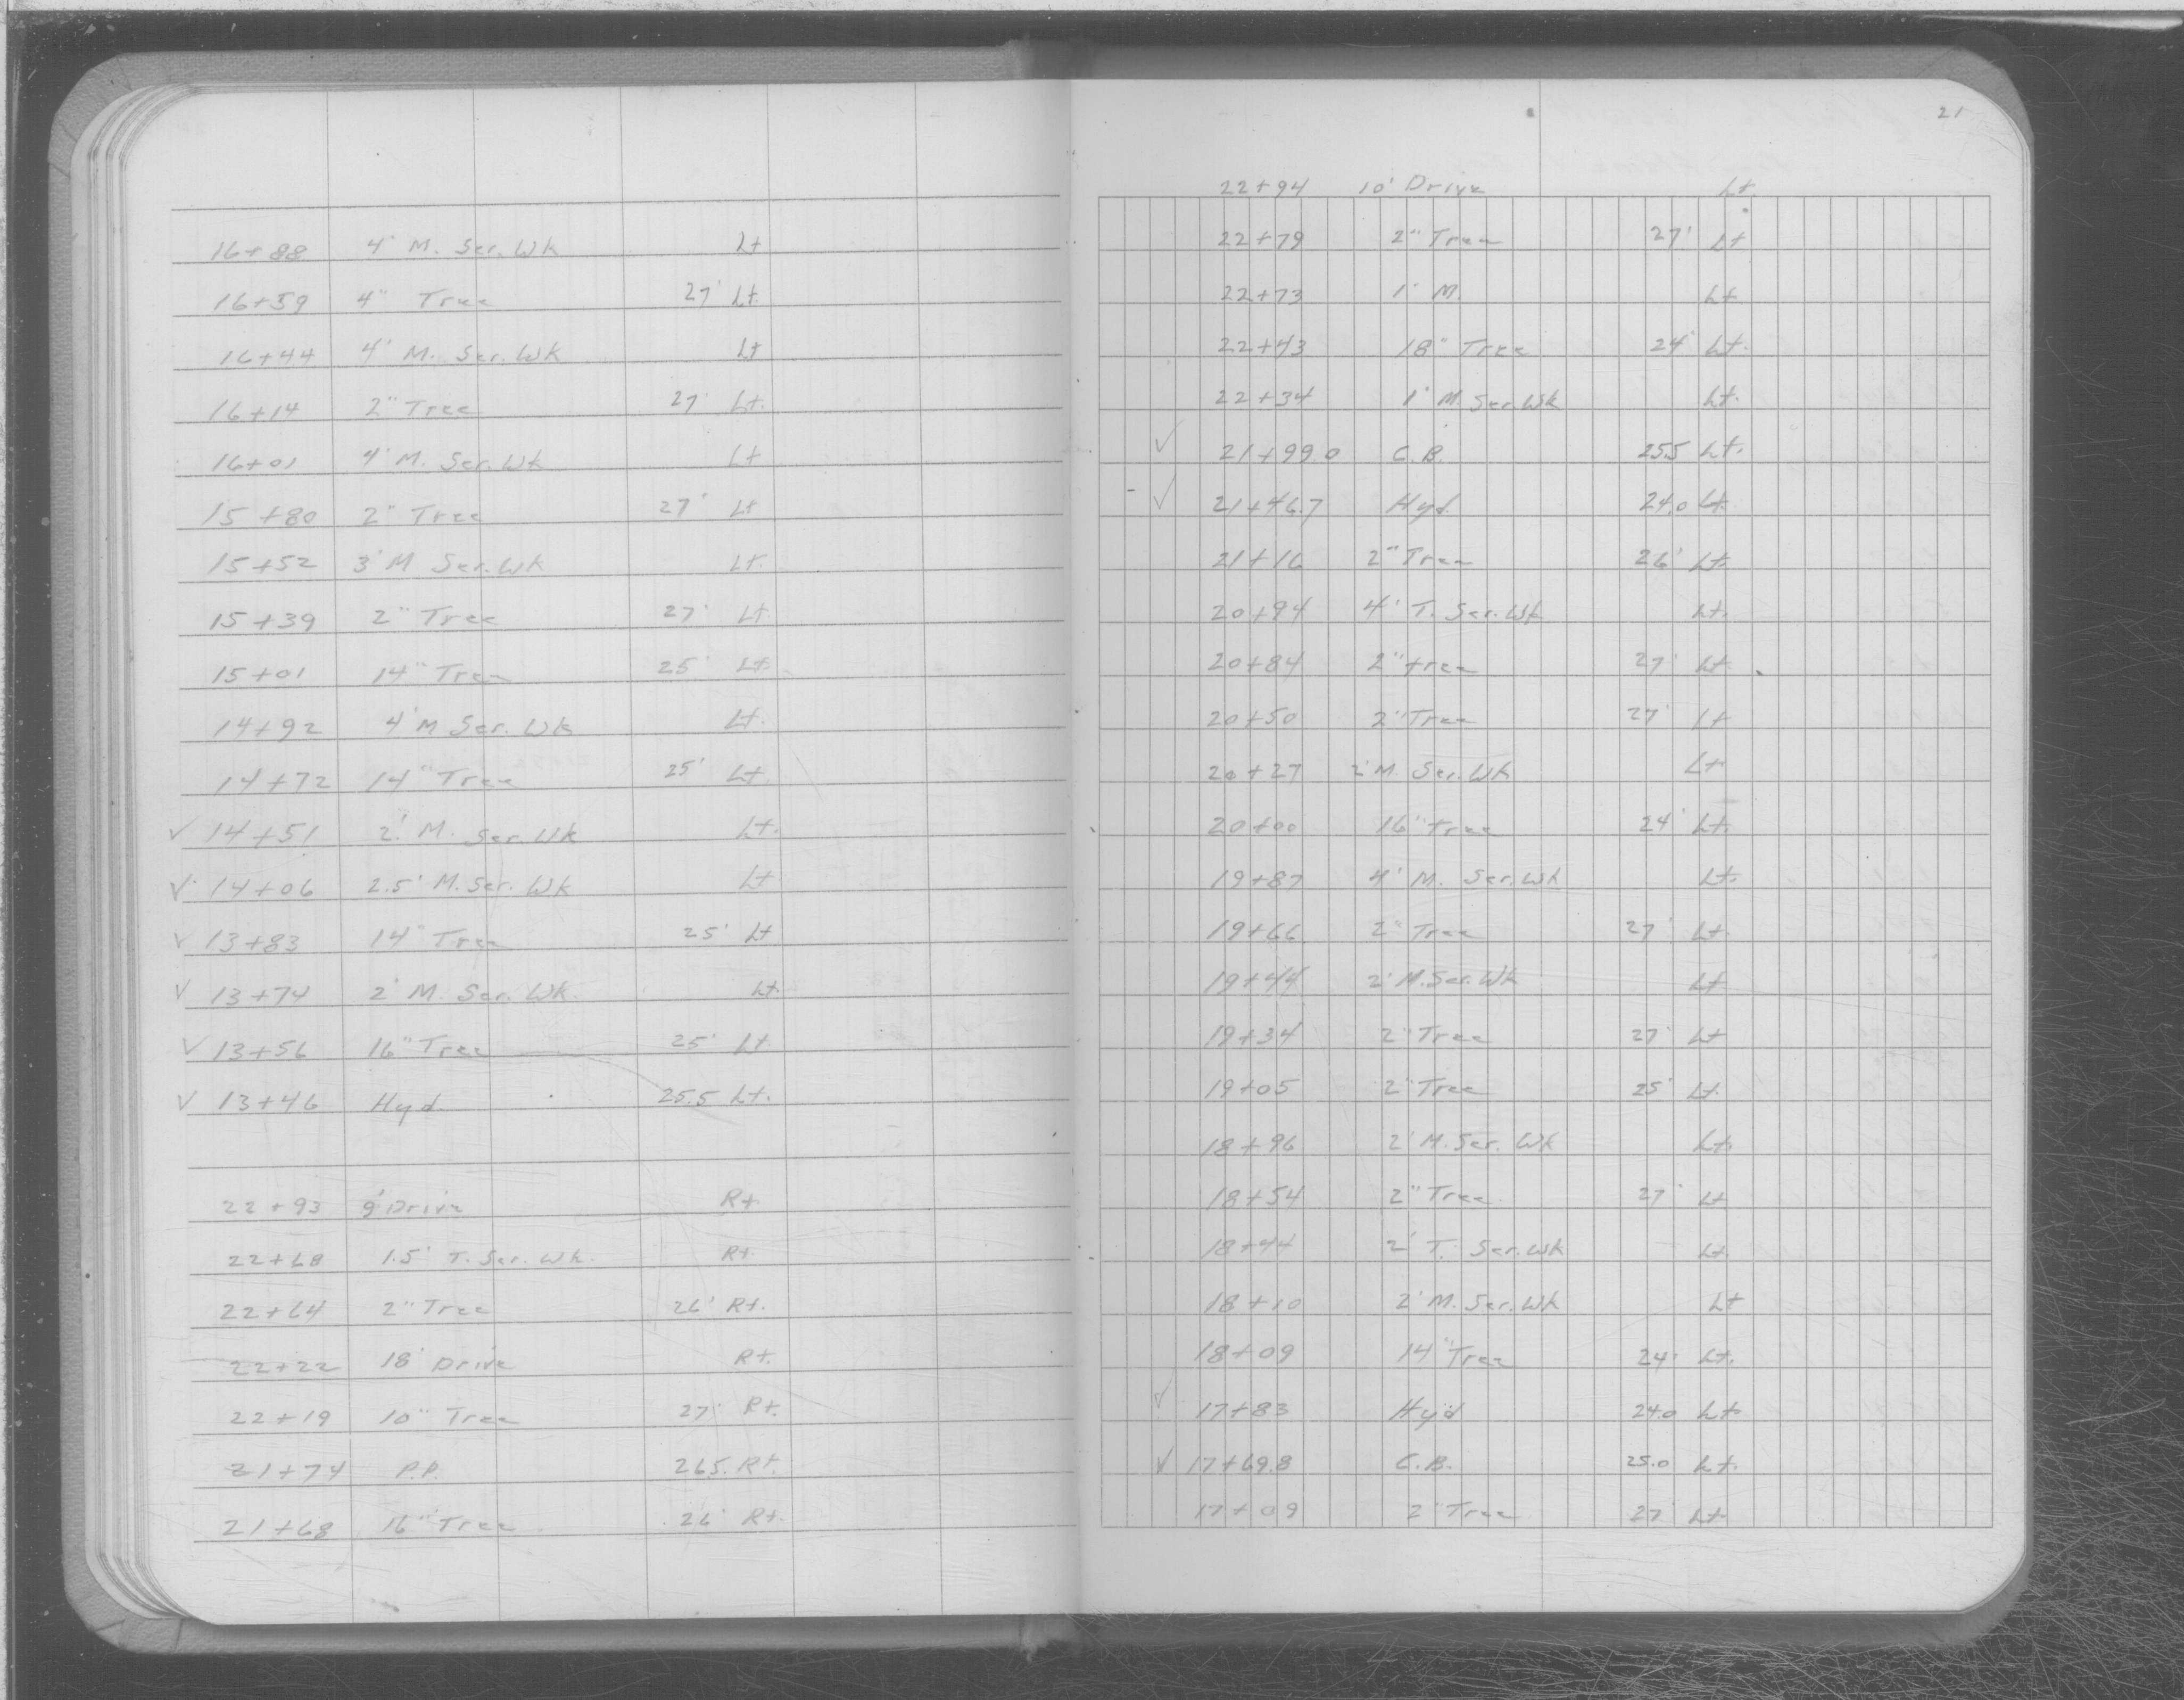 16+88 4' M. Ser. Wk Lt
16+59 4" Tree 27' Lt.
16+44 4' M. Ser. Wk Lt
16+14 2" Tree 27' Lt.
16+01 4' M. Ser. Wk Lt
15+80 2" Tree 27' Lt
15+52 3' M Ser. Wk Lt.
15+39 2" Tree 27' Lt.
15+01 14" Tree 25' Lt.
14+92 4' M Ser. Wk Lt.
14+72 14" Tree 25' Lt.
✓ 14+51 2' M. Ser. Wk Lt.
✓ 14+06 2.5' M. Ser. Wk Lt
✓ 13+83 14" Tree 25' Lt
✓ 13+74 2' M. Ser. Wk. Lt.
✓ 13+56 16" Tree 25' Lt
✓ 13+46 Hyd. 25.5 Lt.
22+93 9' Drive Rt.
22+68 1.5' T. Ser. Wk. Rt.
22+64 2" Tree 26' Rt.
22+22 18' Drive Rt.
22+19 10" Tree 27' Rt.
21+74 P.P. 26.5. Rt.
21+68 16" Tree 26' Rt.
21
22+94 10' Drive Lt.
22+79 2" Tree 27' Lt.
22+73 1' M. Lt
22+43 18" Tree 24' Lt.
22+34 1' M. Ser. Wk Lt.
✓ 21+99.0 C.B. 25.5 Lt.
- ✓ 21+46.7 Hyd. 24.0 Lt.
21+16 2" Tree 26' Lt.
20+94 4' T. Ser. Wk Lt.
20+84 2" tree 27' Lt.
20+50 2" Tree 27' Lt
20+27 2' M. Ser. Wk Lt
20+00 16" tree 24' Lt.
19+87 4' M. Ser. Wk Lt.
19+66 2" Tree 27' Lt.
19+44 2' M. Ser. Wk Lt
19+34 2" Tree 27' Lt
19+05 2" Tree 25' Lt.
18+96 2' M. Ser. Wk Lt.
18+54 2" Tree 27' Lt
18+44 2' T. Ser. Wk Lt.
18+10 2' M. Ser. Wk Lt
18+09 14" Tree 24' Lt.
✓ 17+83 Hyd 24.0 Lt.
✓ 17+69.8 C.B. 25.0 Lt.
17+09 2" Tree 27' Lt